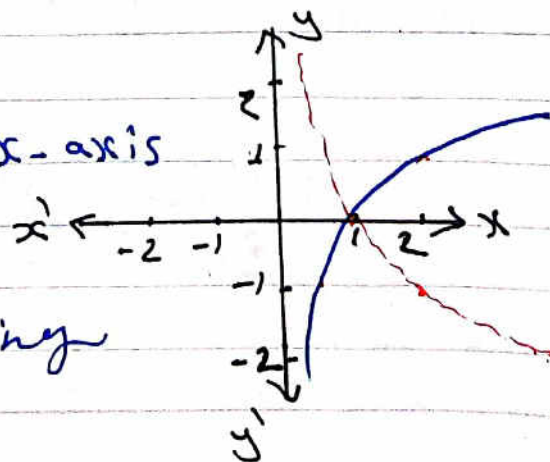 y
2
x-axis
1
x' -2 -1 1 2 x
-1
-2
y'